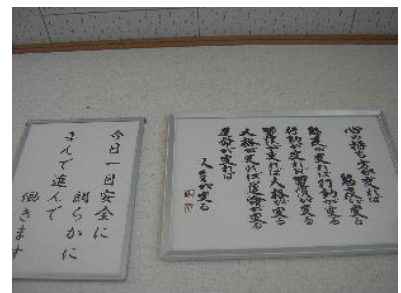 心の持ち方が変れば
態度が変る
態度が変れば行動が変る
行動が変れば習慣が変る
習慣が変れば人格が変る
人格が変れば運命が変る
運命が変れば
人生が変る
今日一日安全に
朗らかに
進んで
働きます